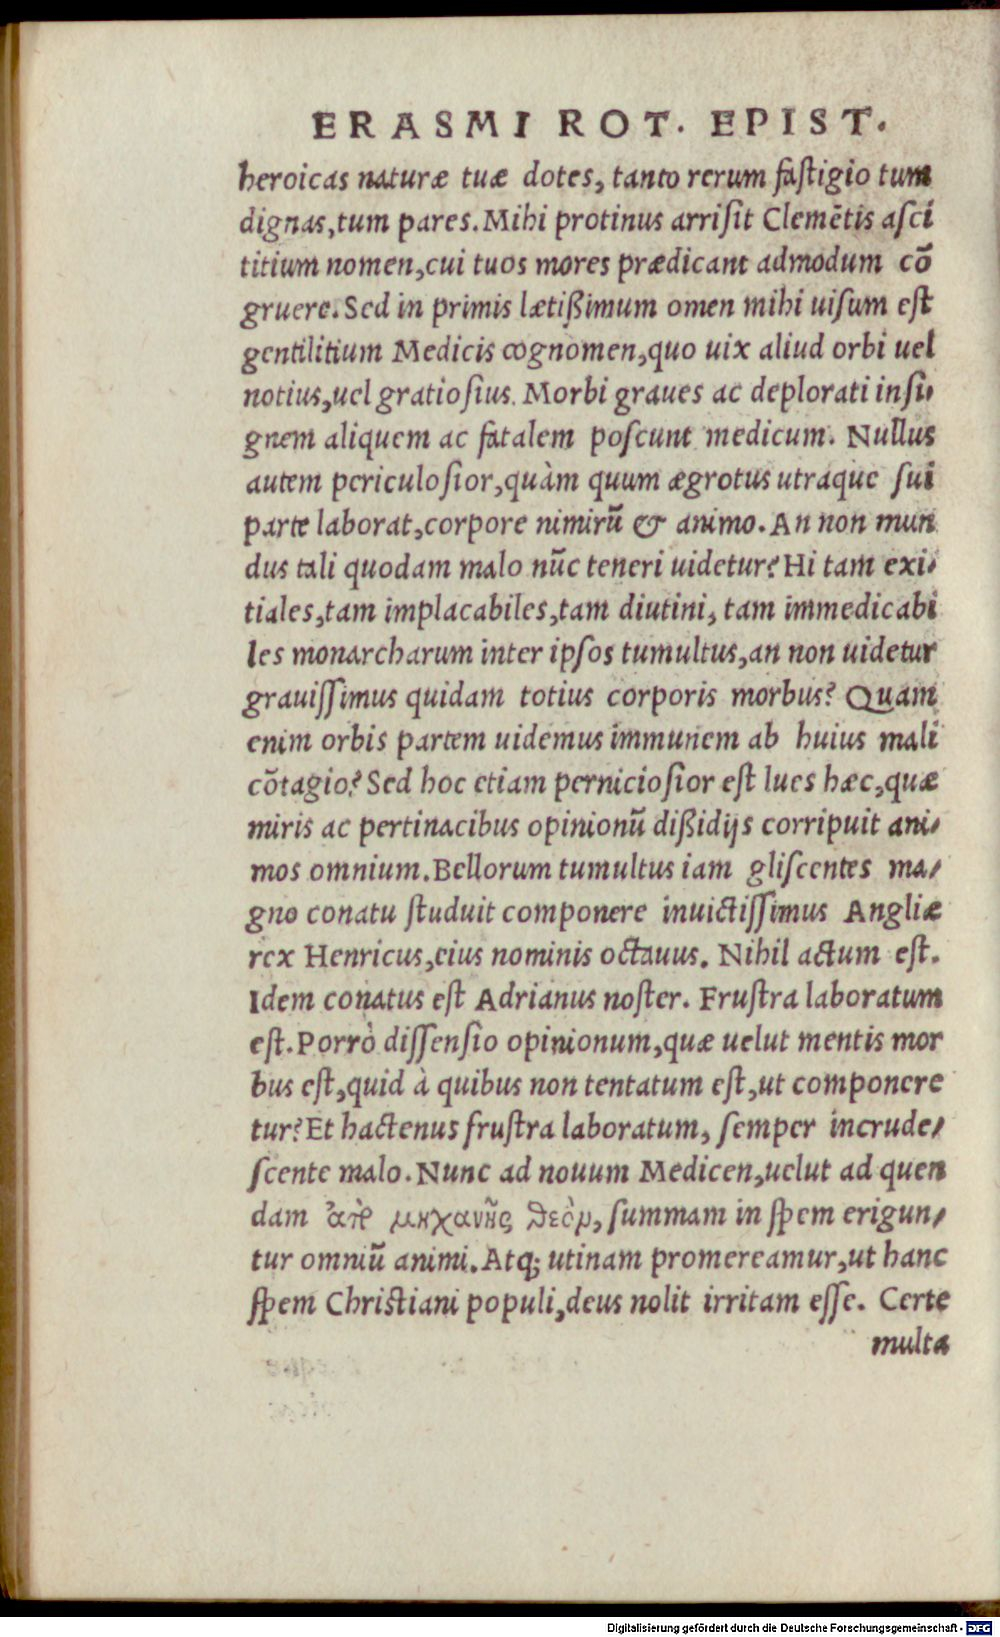 ERASMI ROT. EPIST.
heroicas naturæ tuæ dotes, tanto rerum faſtigio tum
dignas, tum pares. Mihi protinus arriſit Clemẽtis aſci
titium nomen, cui tuos mores prædicant admodum cõ
gruere. Sed in primis lætißimum omen mihi uiſum eſt
gentilitium Medicis cognomen, quo uix aliud orbi uel
notius, uel gratioſius. Morbi graues ac deplorati inſi-
gnem aliquem ac fatalem poſcunt medicum. Nullus
autem periculoſior, quàm quum ægrotus utraque ſui
parte laborat, corpore nimirũ & animo. An non mun
dus tali quodam malo nũc teneri uidetur? Hi tam exi-
tiales, tam implacabiles, tam diutini, tam immedicabi
les monarcharum inter ipſos tumultus, an non uidetur
grauiſſimus quidam totius corporis morbus? Quam
enim orbis partem uidemus immunem ab huius mali
cõtagio? Sed hoc etiam pernicioſior eſt lues hæc, quæ
miris ac pertinacibus opinionũ dißidijs corripuit ani-
mos omnium. Bellorum tumultus iam gliſcentes ma-
gno conatu ſtuduit componere inuictiſſimus Angliæ
rex Henricus, eius nominis octauus. Nihil actum eſt.
Idem conatus eſt Adrianus noſter. Fruſtra laboratum
eſt. Porrò diſſenſio opinionum, quæ uelut mentis mor
bus eſt, quid à quibus non tentatum eſt, ut componere
tur? Et hactenus fruſtra laboratum, ſemper incrude-
ſcente malo. Nunc ad nouum Medicen, uelut ad quen
dam ἀπὸ μηχανῆς θεὸν, ſummam in ſpem erigun-
tur omniũ animi. Atq; utinam promereamur, ut hanc
ſpem Chriſtiani populi, deus nolit irritam eſſe. Certe
multa
Digitalisierung gefördert durch die Deutsche Forschungsgemeinschaft - DFG